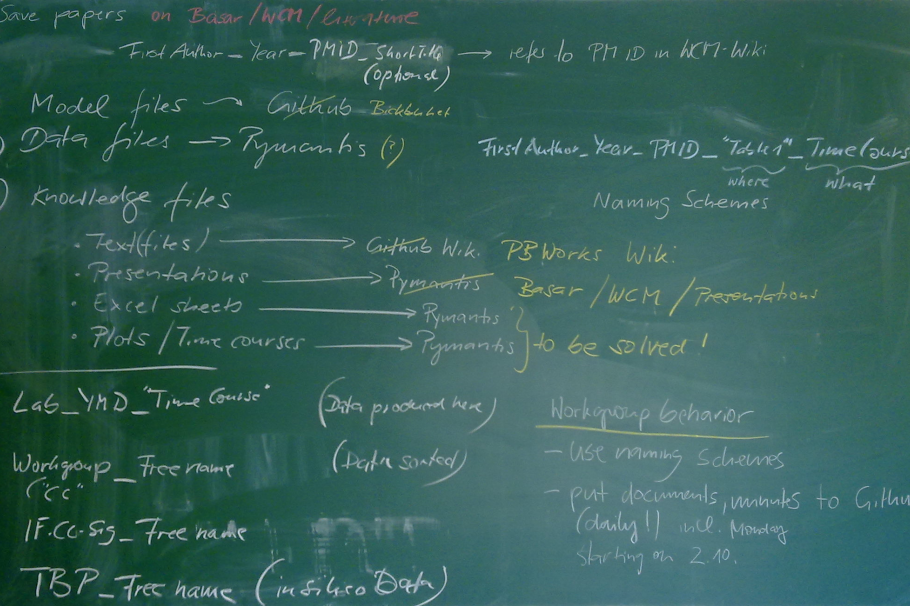 Save papers on Basar/WCM/literature
First Author_Year_PMID_ShortTitle → refers to PMID in WCM-Wiki
(optional)
Model files → Github Bitbucket
Data files → Pymantis (?)
First Author_Year_PMID_"Table 1"_TimeCours
where what
Knowledge files
Naming Schemes
· Text(files) → Github Wiki PBWorks Wiki
· Presentations → Pymantis Basar/WCM/Presentations
· Excel sheets → Pymantis
· Plots/Time courses → Pymantis } to be solved!
Lab_YMD_"Time Course" (Data produced here)
Workgroup_Free name (Data sorted)
("CC"
IF.CC-Sig_Free name
TBP_Free name (in silico Data)
Workgroup behavior
- use naming schemes
- put documents, minutes to Githu
(daily!) incl. Monday
starting on 2.10.